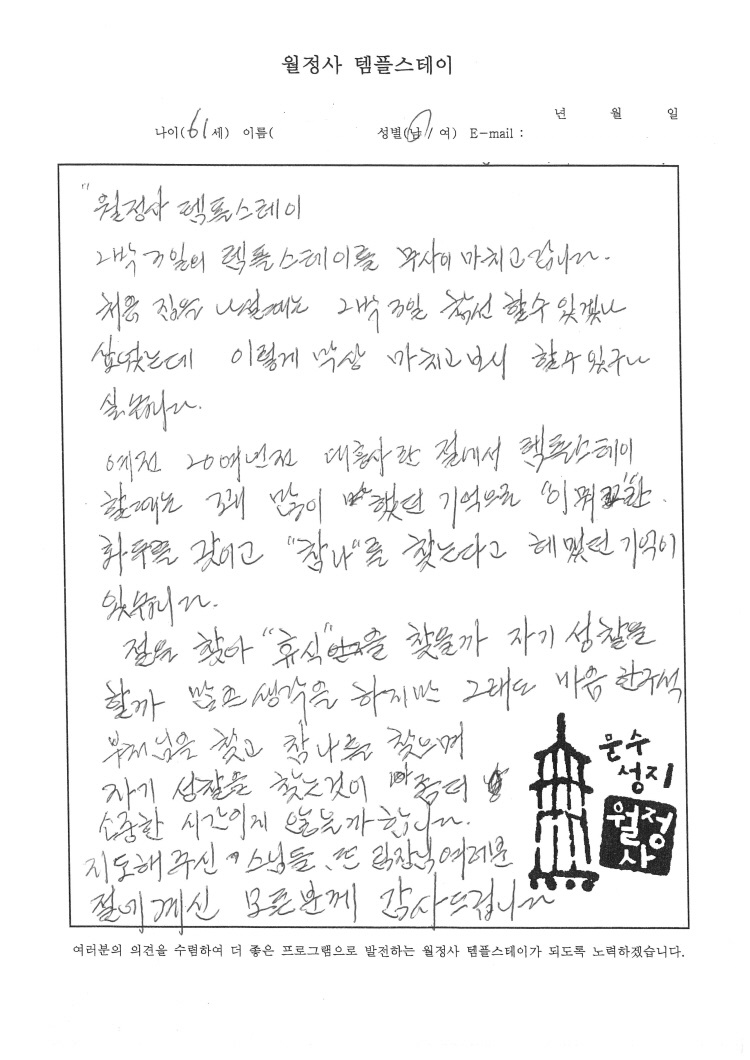 월정사 템플스테이
년 월 일
나이(61세) 이름( 성별(남/여) E-mail :
"월정사 템플스테이
2박 3일의 템플스테이를 무사이 마치고 갑니다.
처음 짐을 나설때는 2박 3일 참선 할수 있겠나
싶었는데 이렇게 막상 마치고 보니 할수 있구나
싶습니다.
예전 20여년전 대흥사란 절에서 템플스테이
할때는 꽤 많이 했던 기억으로 "이뭐꼬"란
화두를 갖이고 "참나"를 찾는다고 헤맸던 기억이
있습니다.
절을 찾아 "휴식"을 찾을까 자기 성찰을
할까 많은 생각을 하지만 그래도 마음 한구석
부처님을 찾고 참나를 찾으며
자기 성찰을 찾는것이 좀더
소중한 시간이지 않을까 합니다.
지도해 주신 스님들, 또 직장님 여러분
절에 계신 모든분께 감사드립니다
문수
성지
월정
사
여러분의 의견을 수렴하여 더 좋은 프로그램으로 발전하는 월정사 템플스테이가 되도록 노력하겠습니다.